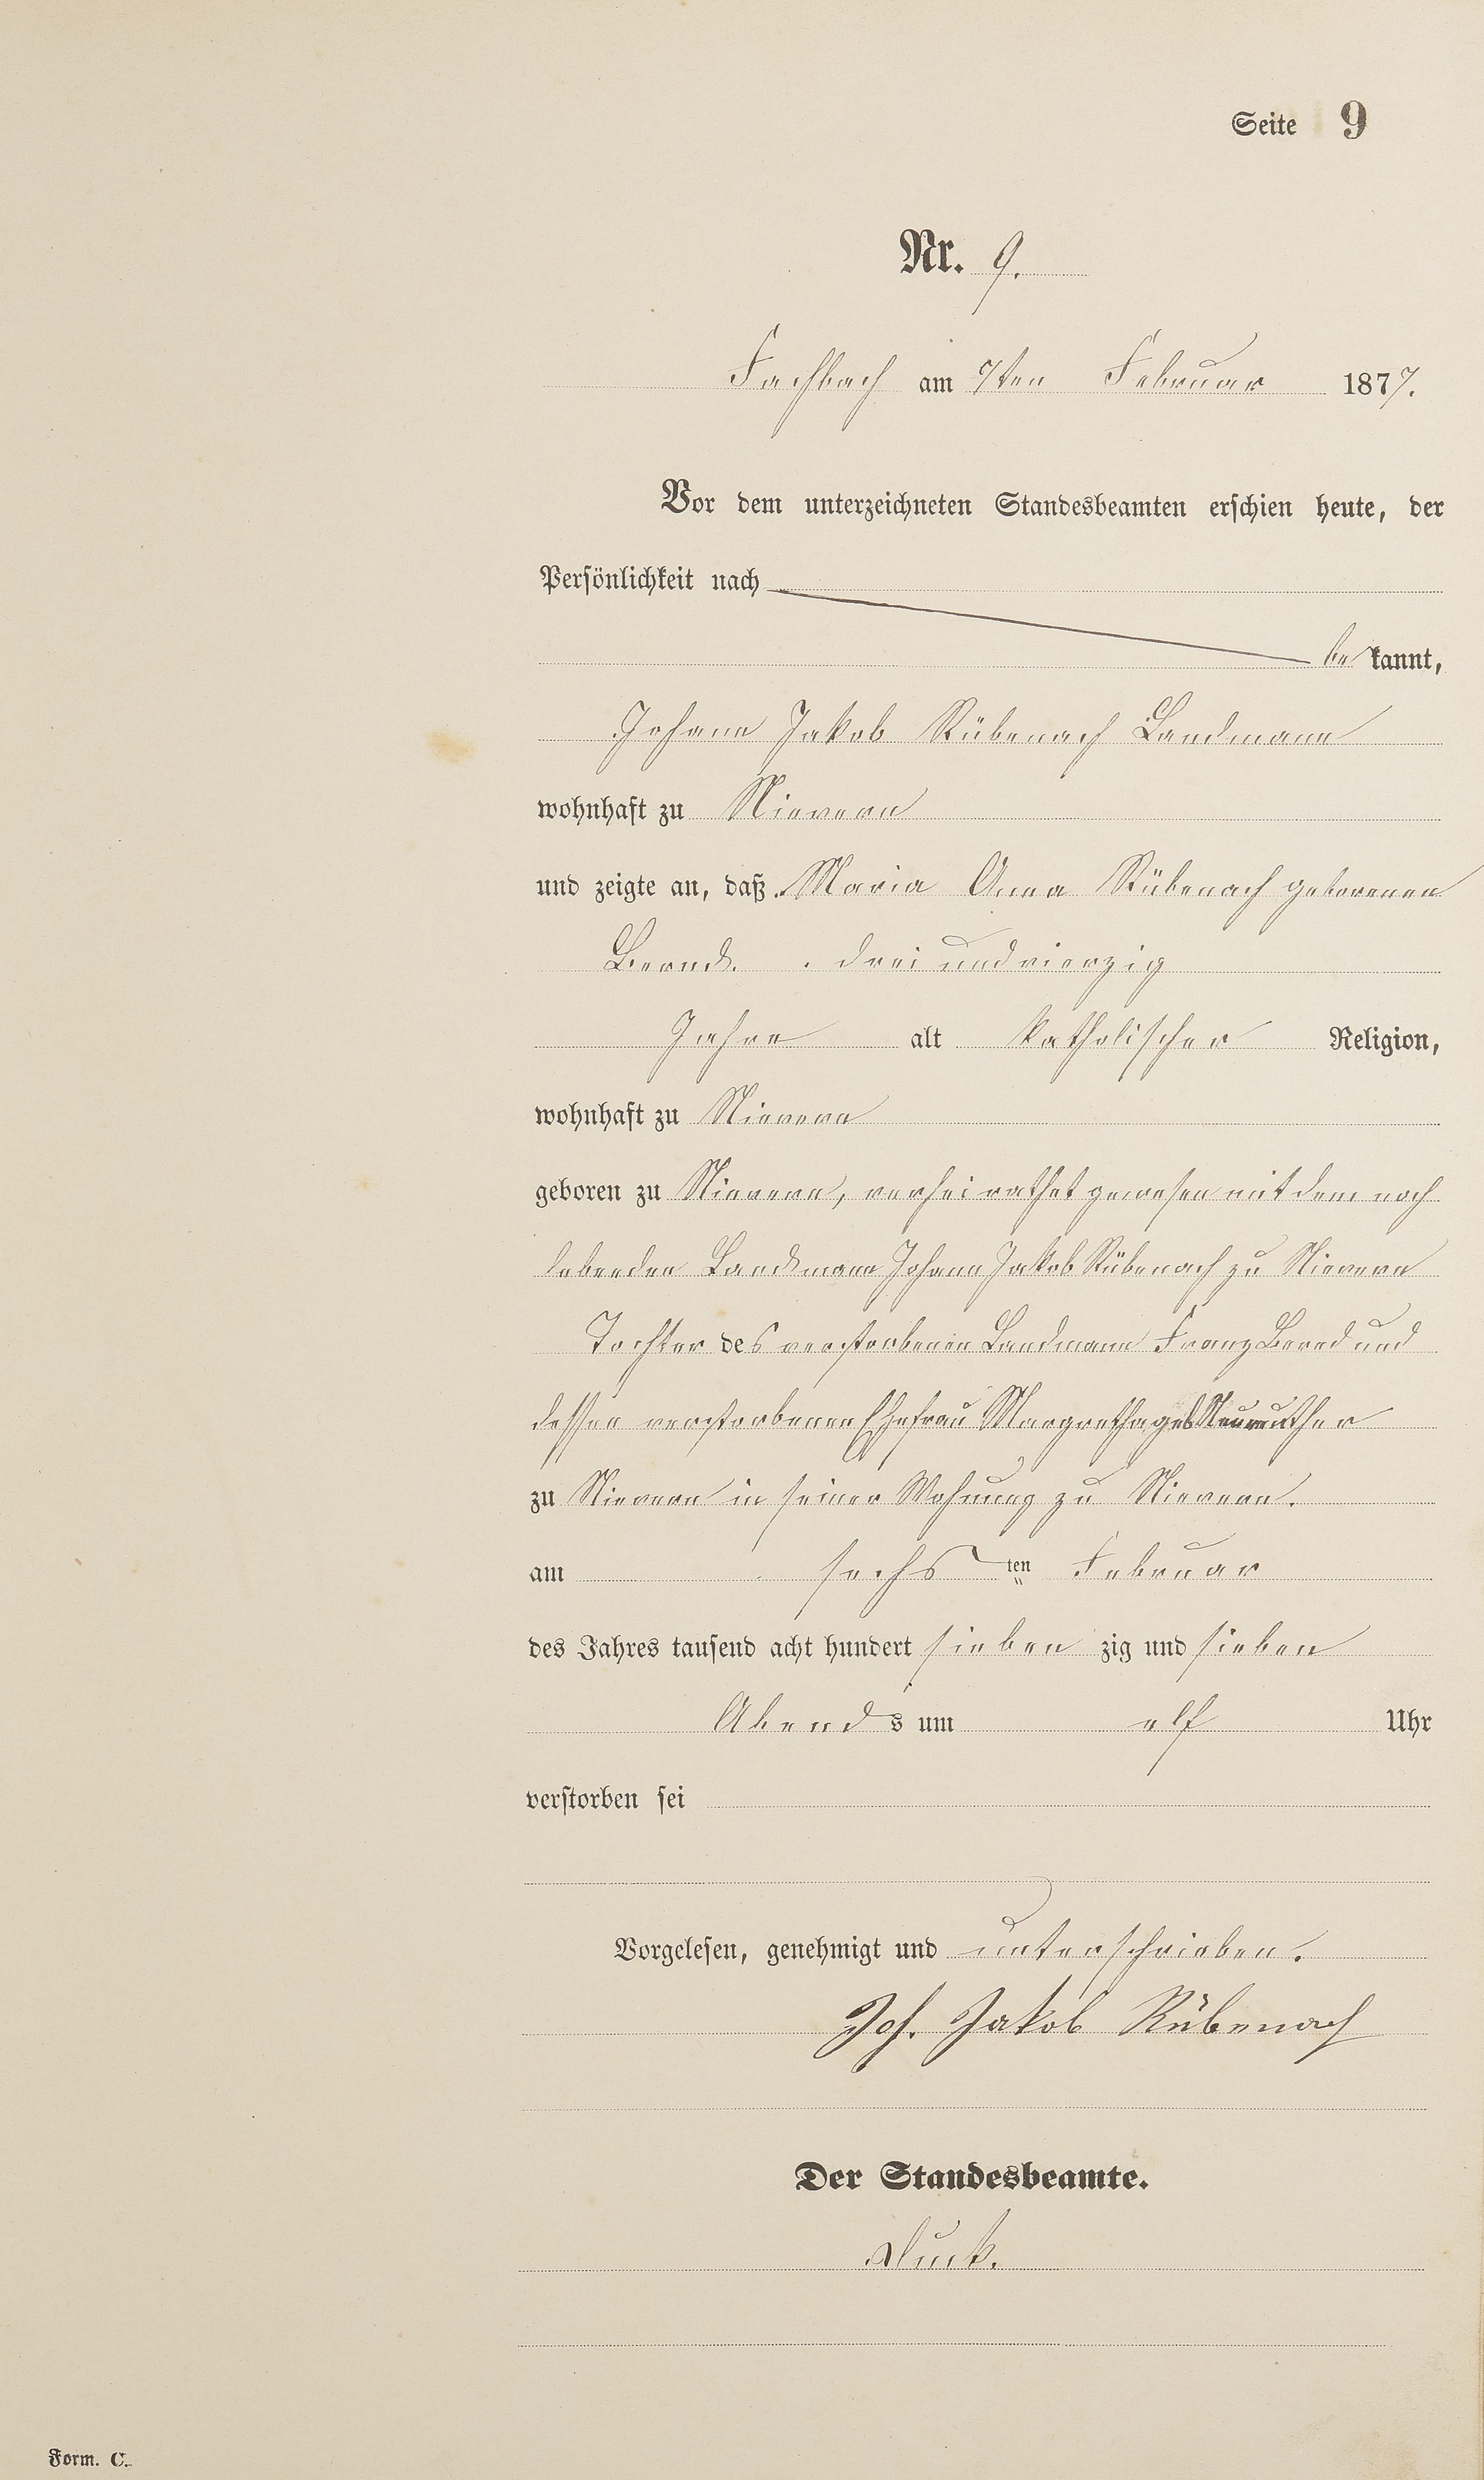 Seite 9
Nr. 9.
Fachbach am 7ten Februar 1877.
Vor dem unterzeichneten Standesbeamten erschien heute, der
Persönlichkeit nach
bekannt,
Johann Jakob Rübenach Landmann
wohnhaft zu Nievern
und zeigte an, daß Maria Anna Rübenach geborenen
Bernd. drei und vierzig
Jahre alt katholischer Religion,
wohnhaft zu Nievern
geboren zu Nievern, verheirathet gewesen mit dem noch
lebenden Landmann Johann Jakob Rübenach zu Nievern
Tochter des verstorbenen Landmann Franz Bernd und
dessen verstorbenen Ehefrau Margretha geb
zu Nievern in seiner Wohnung zu Nievern.
am sechs ten Februar
des Jahres tausend acht hundert sieben zig und sieben
Abends um elf Uhr
verstorben sei
Vorgelesen, genehmigt und unterschrieben.
Joh. Jakob Rübenach
Der Standesbeamte.
Form. C.